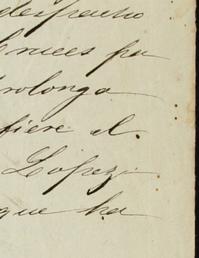 despacho
Cruces pa
prolonga
fiere el
Lopez
que ha